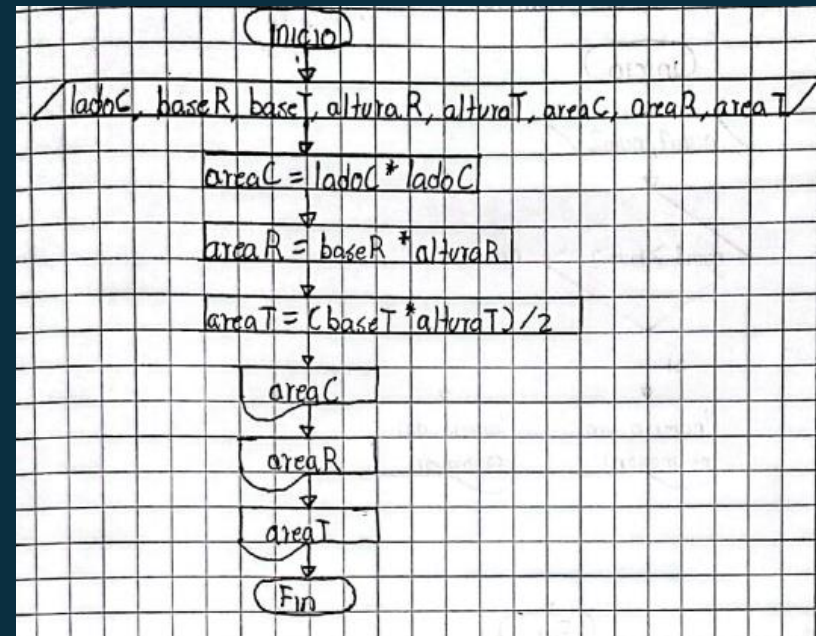 Inicio
ladoC, baseR, baseT, alturaR, alturaT, areaC, areaR, areaT
areaC = ladoC * ladoC
areaR = baseR * alturaR
areaT = (baseT * alturaT) / 2
areaC
areaR
areaT
Fin